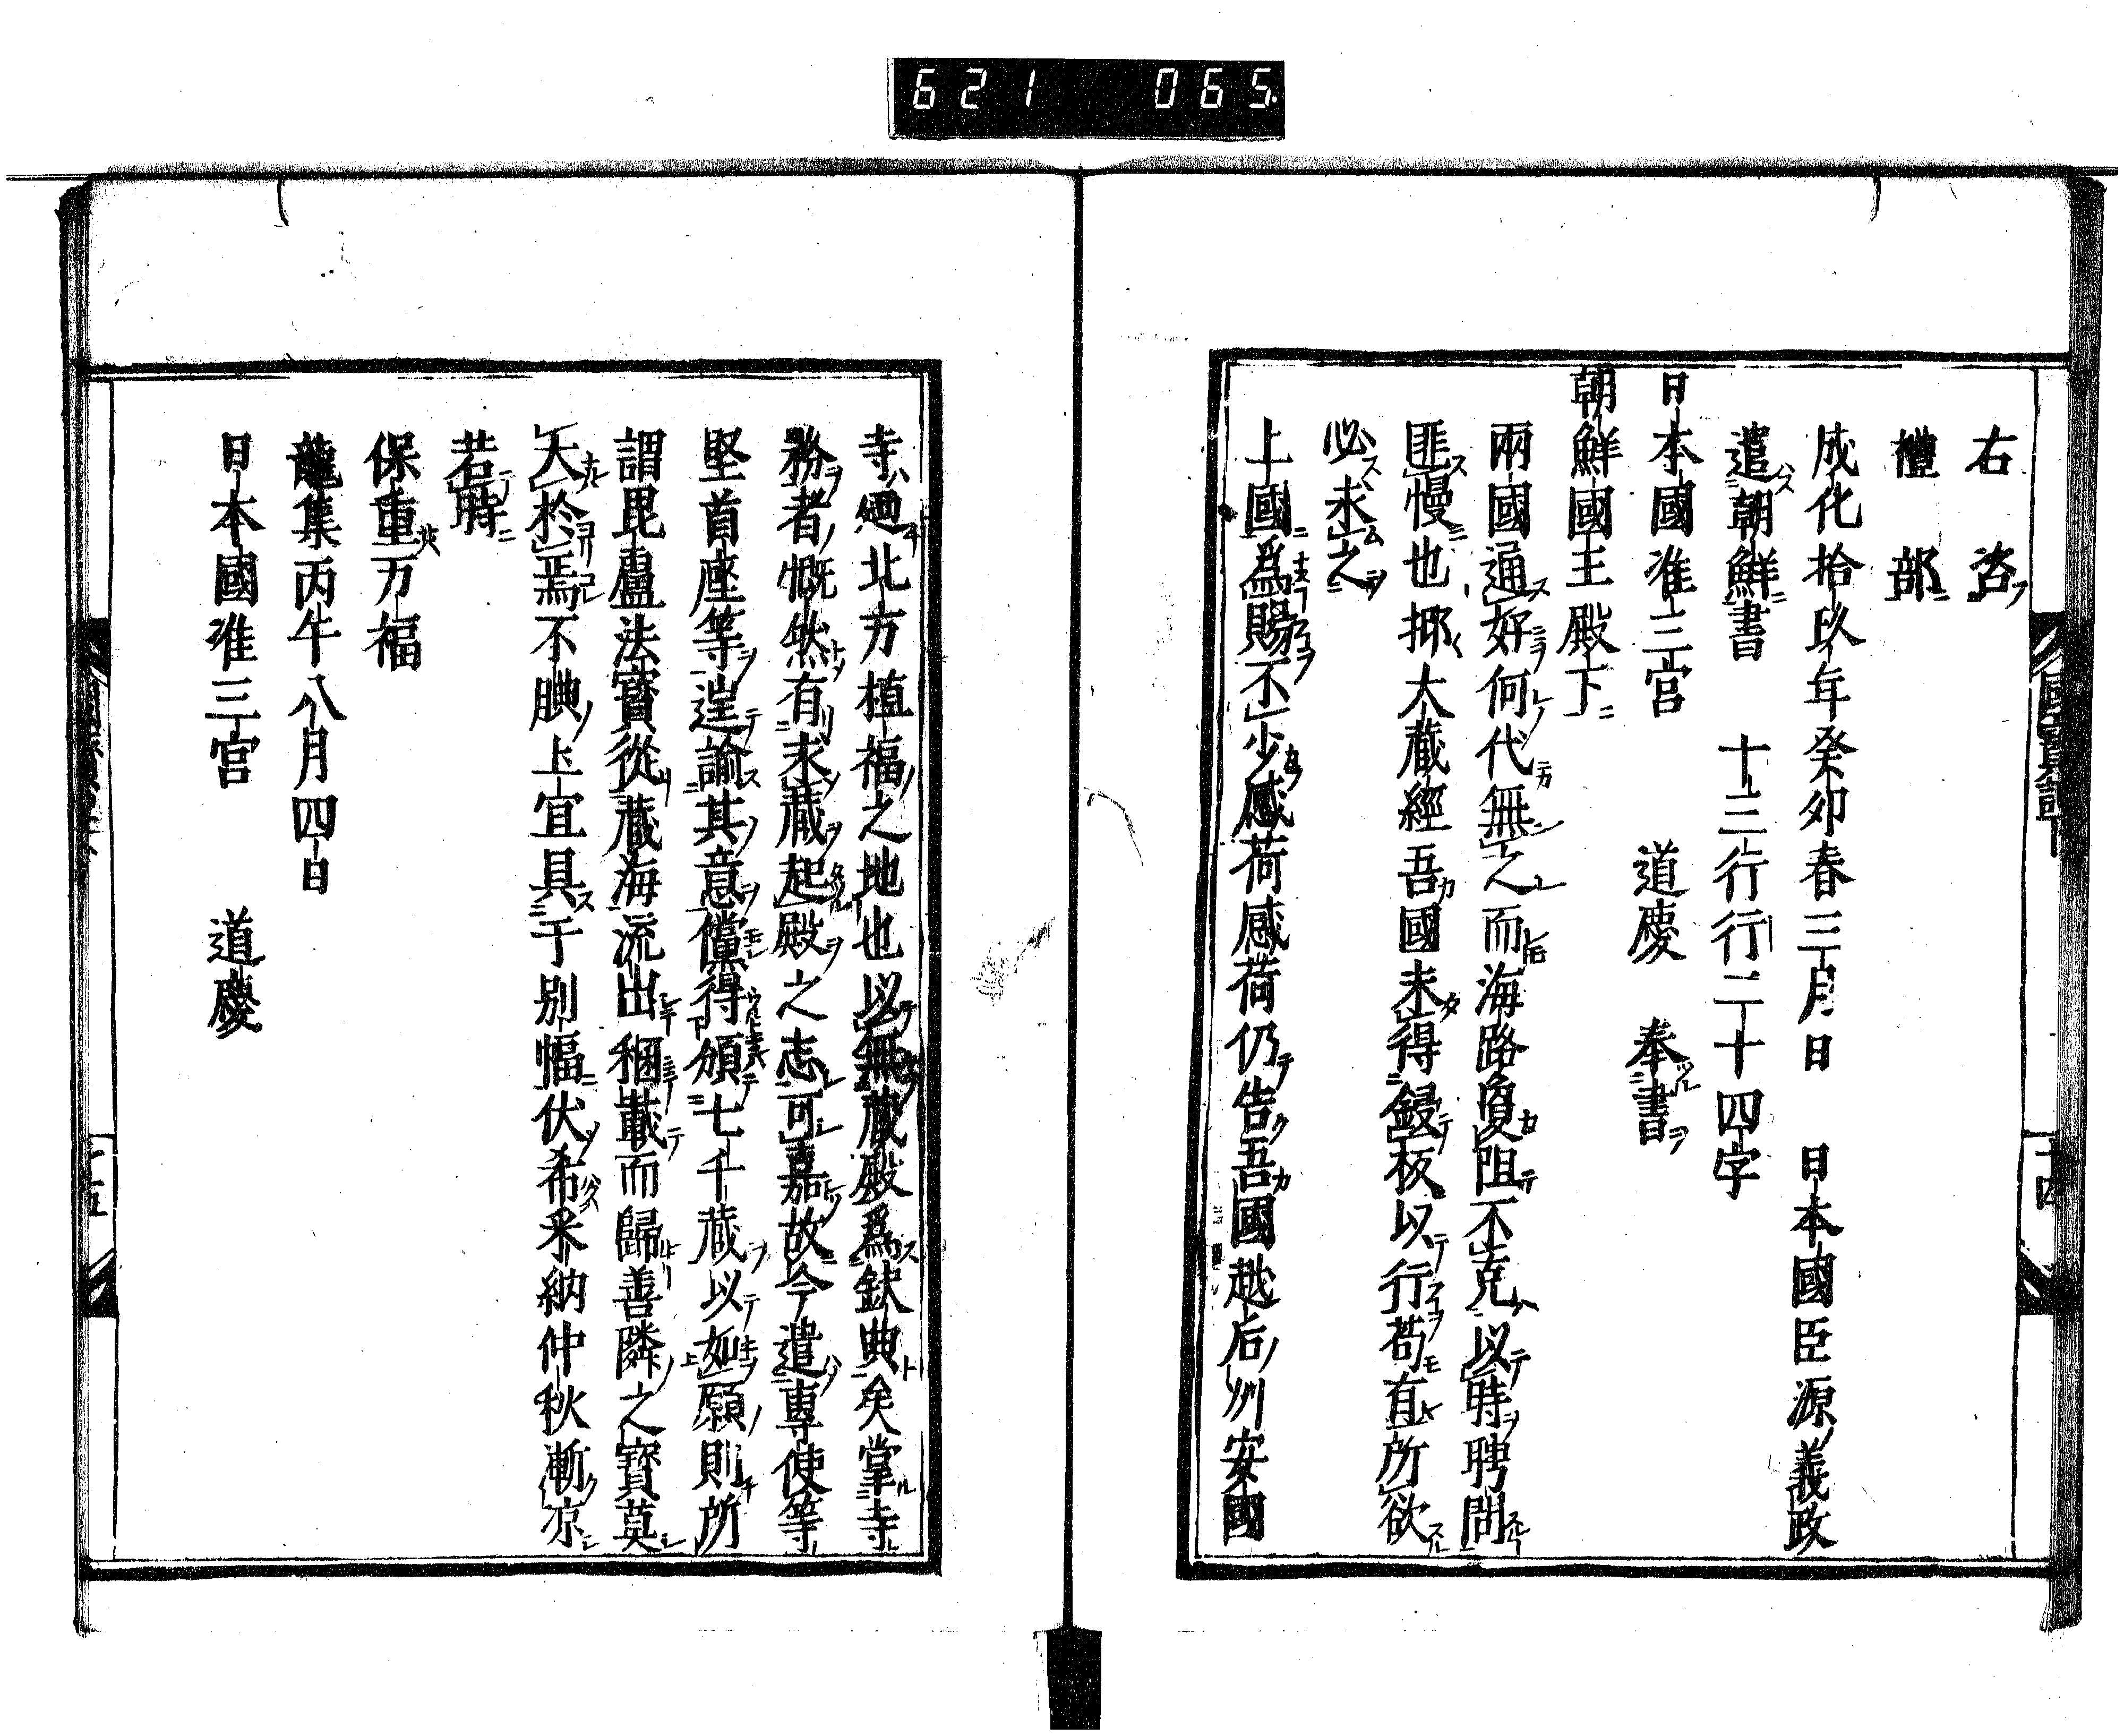 621 065
右 咨
禮 部
成化拾玖年癸卯春三月日 日本國臣源義政
遣朝鮮書 十三行行二十四字
日本國准三宮 道慶 奉書
朝鮮國王殿下
兩國通好何代無之而海路夐阻不克以時聘問
匪慢也抑大藏經吾國未得鋟板以行苟有所欲
必求之
上國為賜不少感荷感荷仍告吾國越后州安國
寺廼北方植福之地也以無藏殿為欽典矣掌寺
務者慨然有求藏起殿之志可嘉故今遣專使等
堅首座等逞諭其意儻得頒七千藏以如願則所
謂毘盧法寶從藏海流出稛載而歸善隣之寶莫
大於焉不腆土宜具于別幅伏希采納仲秋漸凉
若時
保重万福
龍集丙午八月四日
日本國准三宮 道慶